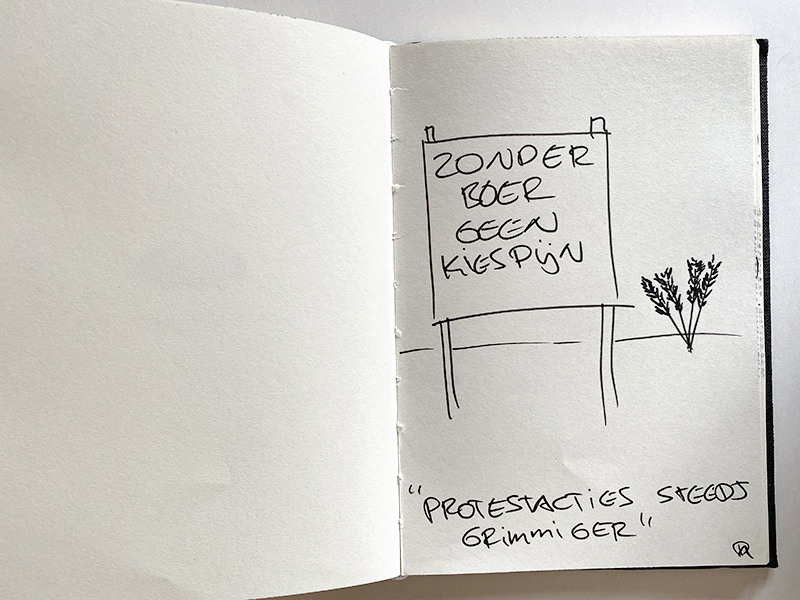 ZONDER
BOER
GEEN
KIESPIJN
"PROTESTACTIES STEEDS
GRIMMIGER"